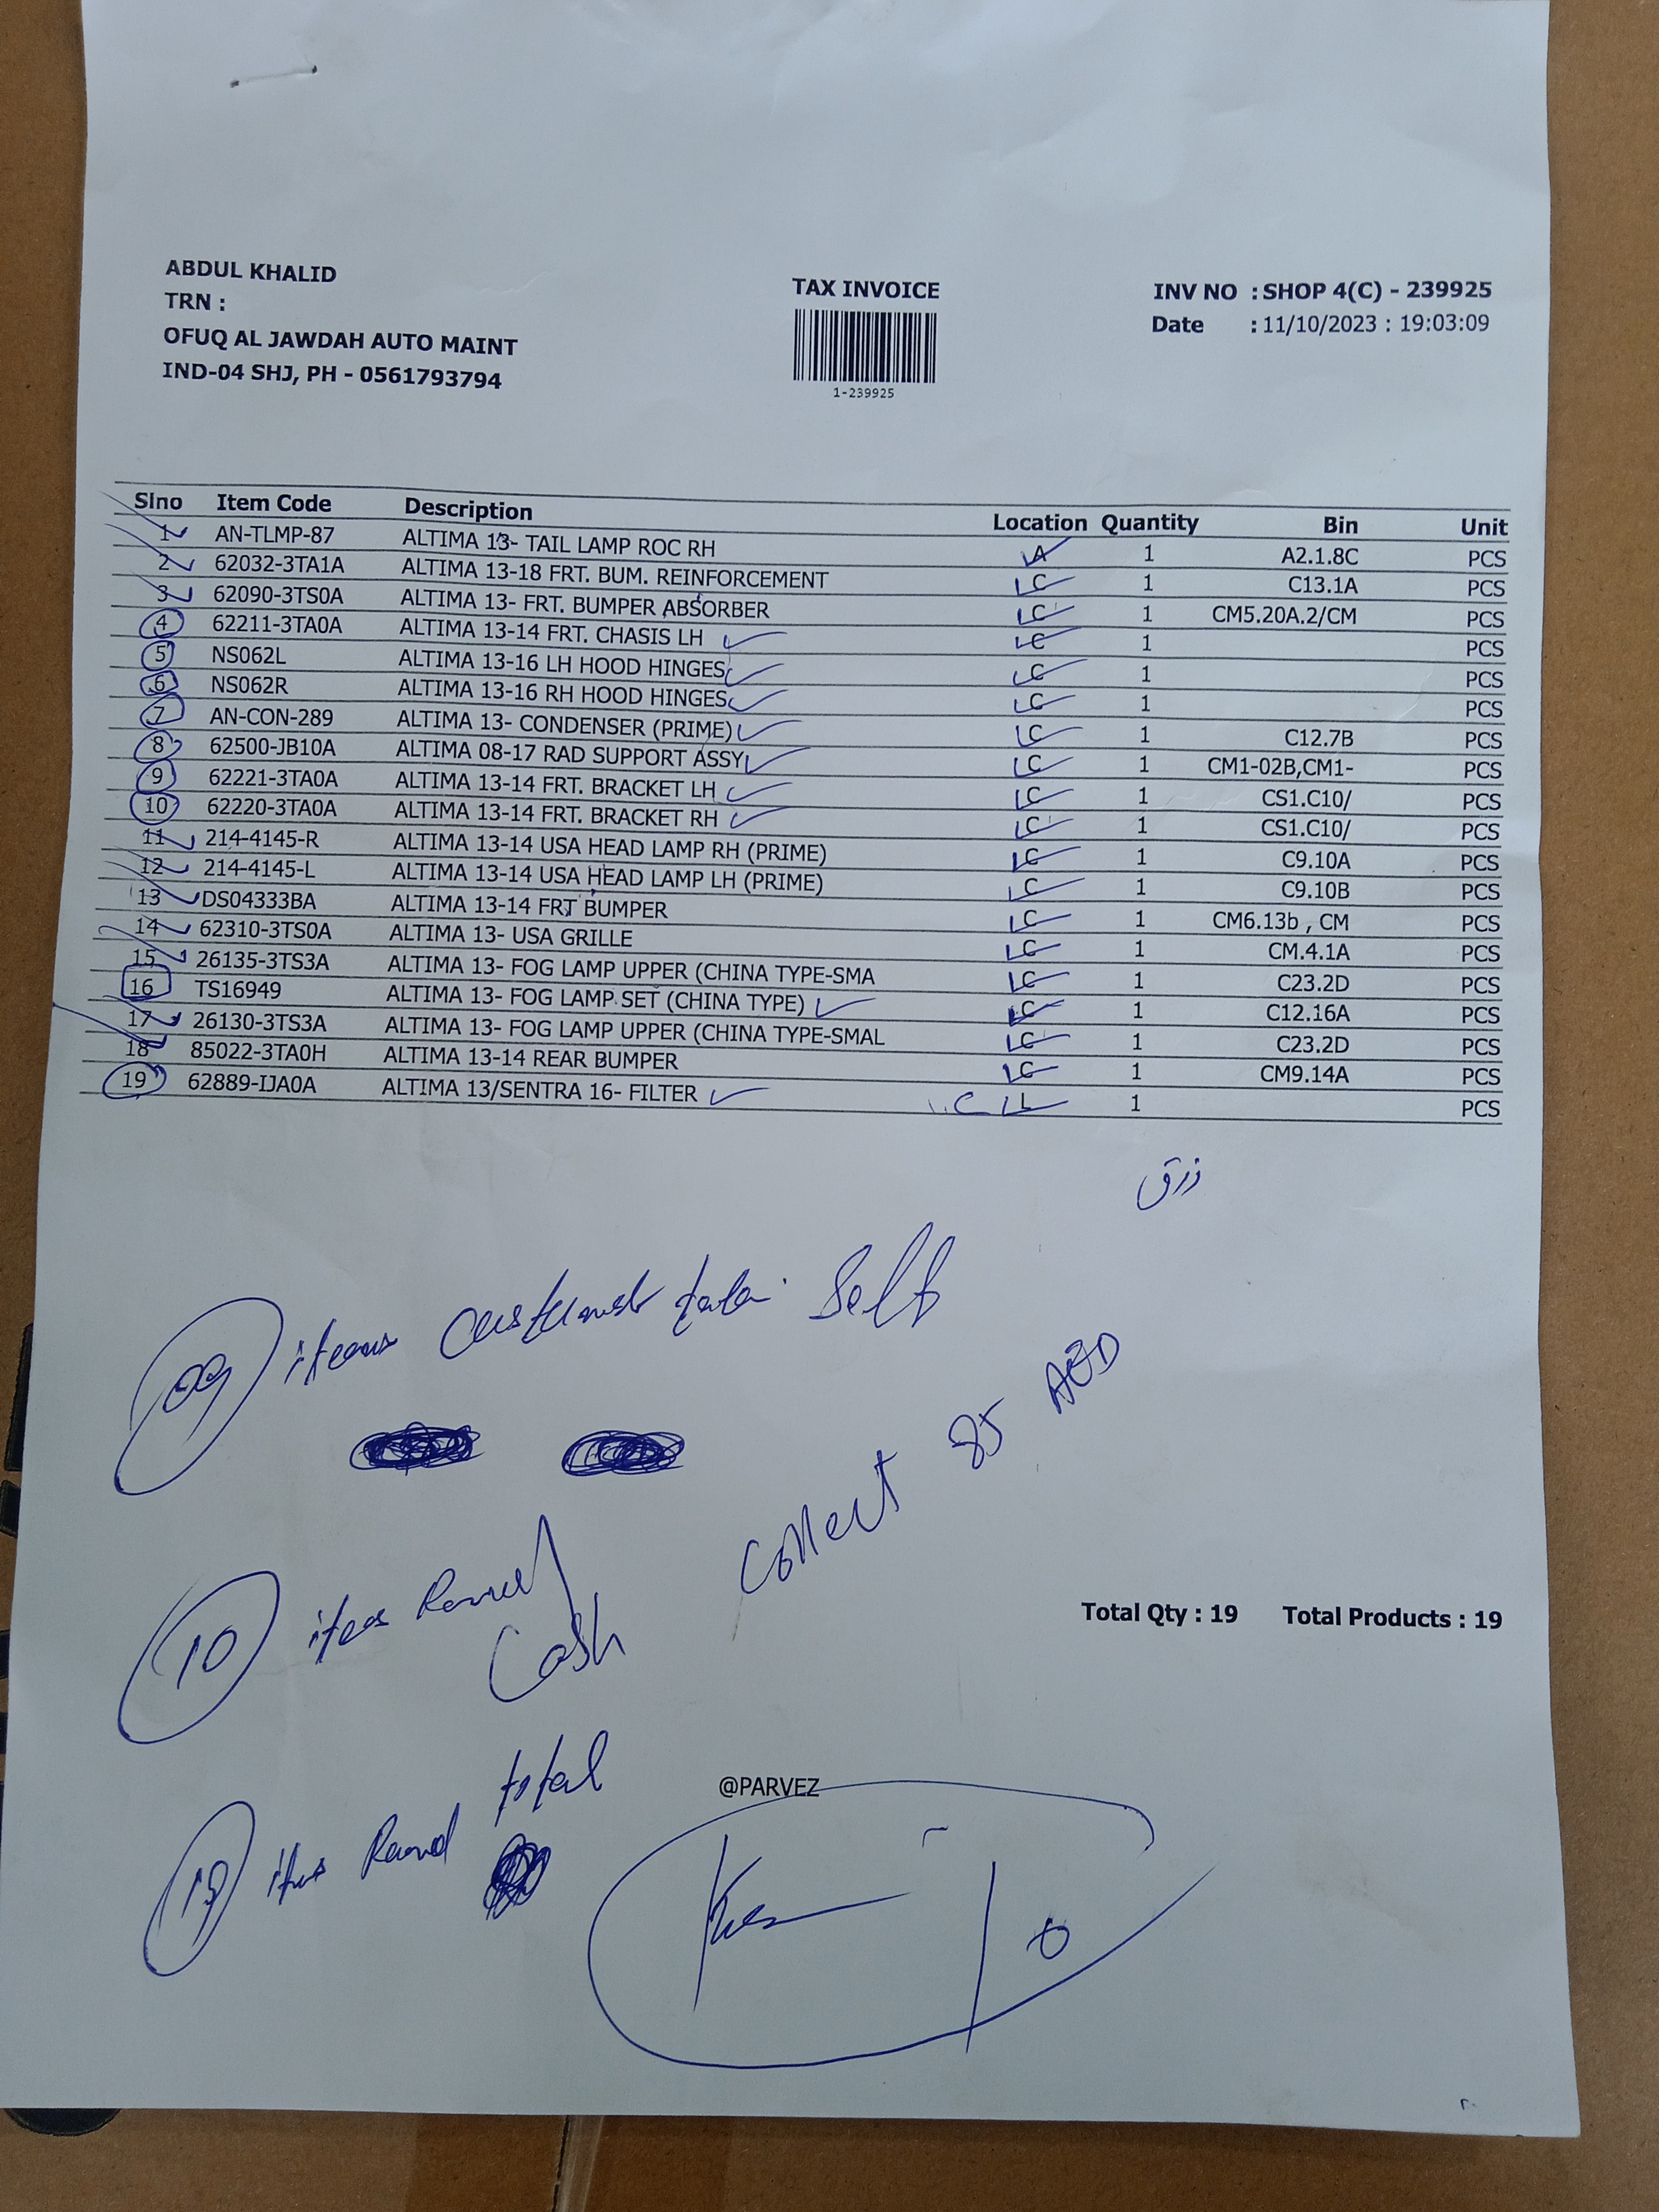 ABDUL KHALID
TRN :
OFUQ AL JAWDAH AUTO MAINT
IND-04 SHJ, PH - 0561793794
TAX INVOICE
1-239925
INV NO : SHOP 4(C) - 239925
Date : 11/10/2023 : 19:03:09
Slno Item Code Description Location Quantity Bin Unit
1 AN-TLMP-87 ALTIMA 13- TAIL LAMP ROC RH A 1 A2.1.8C PCS
2 62032-3TA1A ALTIMA 13-18 FRT. BUM. REINFORCEMENT C 1 C13.1A PCS
3 62090-3TS0A ALTIMA 13- FRT. BUMPER ABSORBER C 1 CM5.20A.2/CM PCS
4 62211-3TA0A ALTIMA 13-14 FRT. CHASIS LH C 1 PCS
5 NS062L ALTIMA 13-16 LH HOOD HINGES C 1 PCS
6 NS062R ALTIMA 13-16 RH HOOD HINGES C 1 PCS
7 AN-CON-289 ALTIMA 13- CONDENSER (PRIME) C 1 C12.7B PCS
8 62500-JB10A ALTIMA 08-17 RAD SUPPORT ASSY C 1 CM1-02B,CM1- PCS
9 62221-3TA0A ALTIMA 13-14 FRT. BRACKET LH C 1 CS1.C10/ PCS
10 62220-3TA0A ALTIMA 13-14 FRT. BRACKET RH C 1 CS1.C10/ PCS
11 214-4145-R ALTIMA 13-14 USA HEAD LAMP RH (PRIME) C 1 C9.10A PCS
12 214-4145-L ALTIMA 13-14 USA HEAD LAMP LH (PRIME) C 1 C9.10B PCS
13 DS04333BA ALTIMA 13-14 FRT BUMPER C 1 CM6.13b , CM PCS
14 62310-3TS0A ALTIMA 13- USA GRILLE C 1 CM.4.1A PCS
15 26135-3TS3A ALTIMA 13- FOG LAMP UPPER (CHINA TYPE-SMA C 1 C23.2D PCS
16 TS16949 ALTIMA 13- FOG LAMP SET (CHINA TYPE) C 1 C12.16A PCS
17 26130-3TS3A ALTIMA 13- FOG LAMP UPPER (CHINA TYPE-SMAL C 1 C23.2D PCS
18 85022-3TA0H ALTIMA 13-14 REAR BUMPER C 1 CM9.14A PCS
19 62889-IJA0A ALTIMA 13/SENTRA 16- FILTER C 1 PCS
09 items Self
Collect 85 AED
10
Cash
Total Qty : 19 Total Products : 19
total
19
@PARVEZ